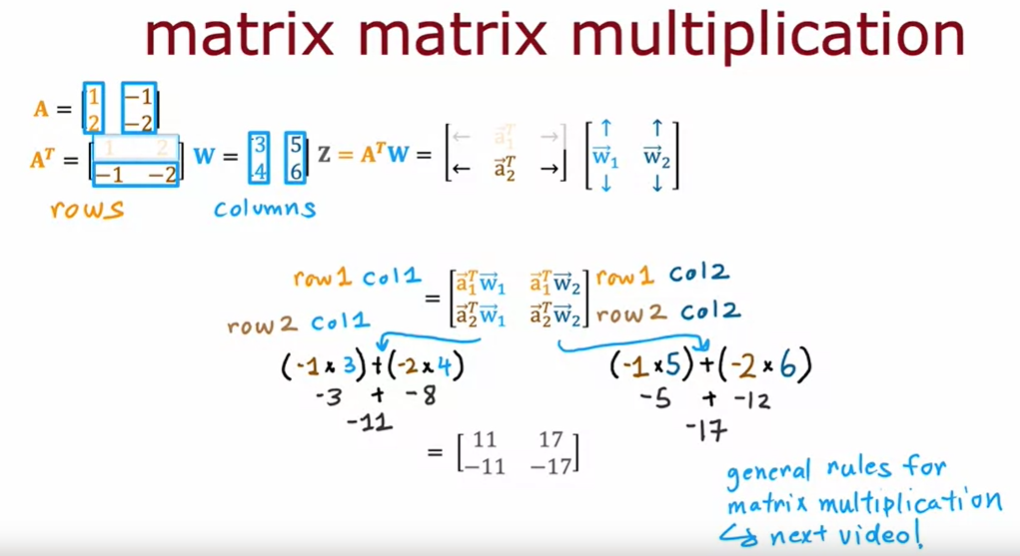 matrix matrix multiplication
A = [1 -1
2 -2]
Aᵀ = [1 2
-1 -2] W = [3 5
4 6] Z = AᵀW = [← a⃗₁ᵀ →
← a⃗₂ᵀ →] [↑ ↑
w⃗₁ w⃗₂
↓ ↓]
rows columns
row1 col1 = [a⃗₁ᵀw⃗₁ a⃗₁ᵀw⃗₂] row1 col2
row2 col1 [a⃗₂ᵀw⃗₁ a⃗₂ᵀw⃗₂] row2 col2
(-1 × 3)+(-2 × 4) (-1 × 5)+(-2 × 6)
-3 + -8 -5 + -12
-11 -17
= [11 17
-11 -17]
general rules for
matrix multiplication
↳ next video!